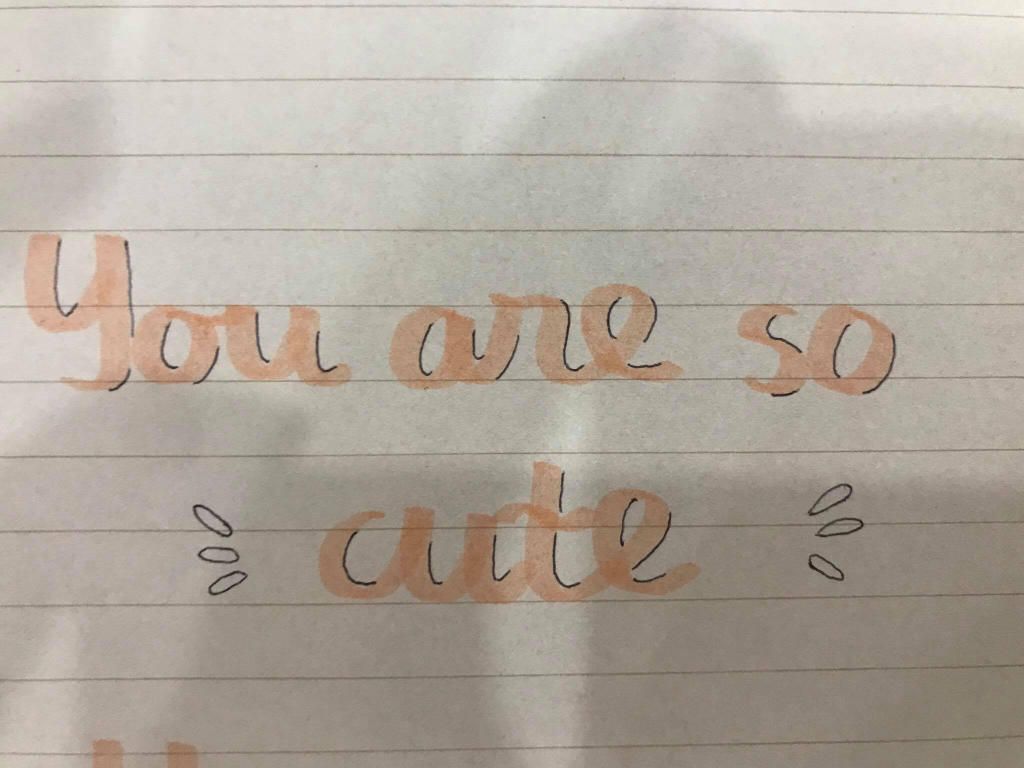 You are so
cute